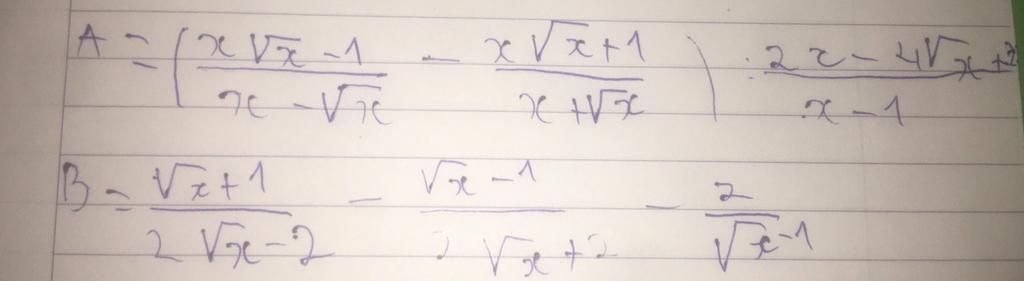 A = (x√x - 1 / x - √x - x√x + 1 / x + √x) : 2x - 4√x + 2 / x - 1
B = √x + 1 / 2√x - 2 - √x - 1 / 2√x + 2 - 2 / √x - 1